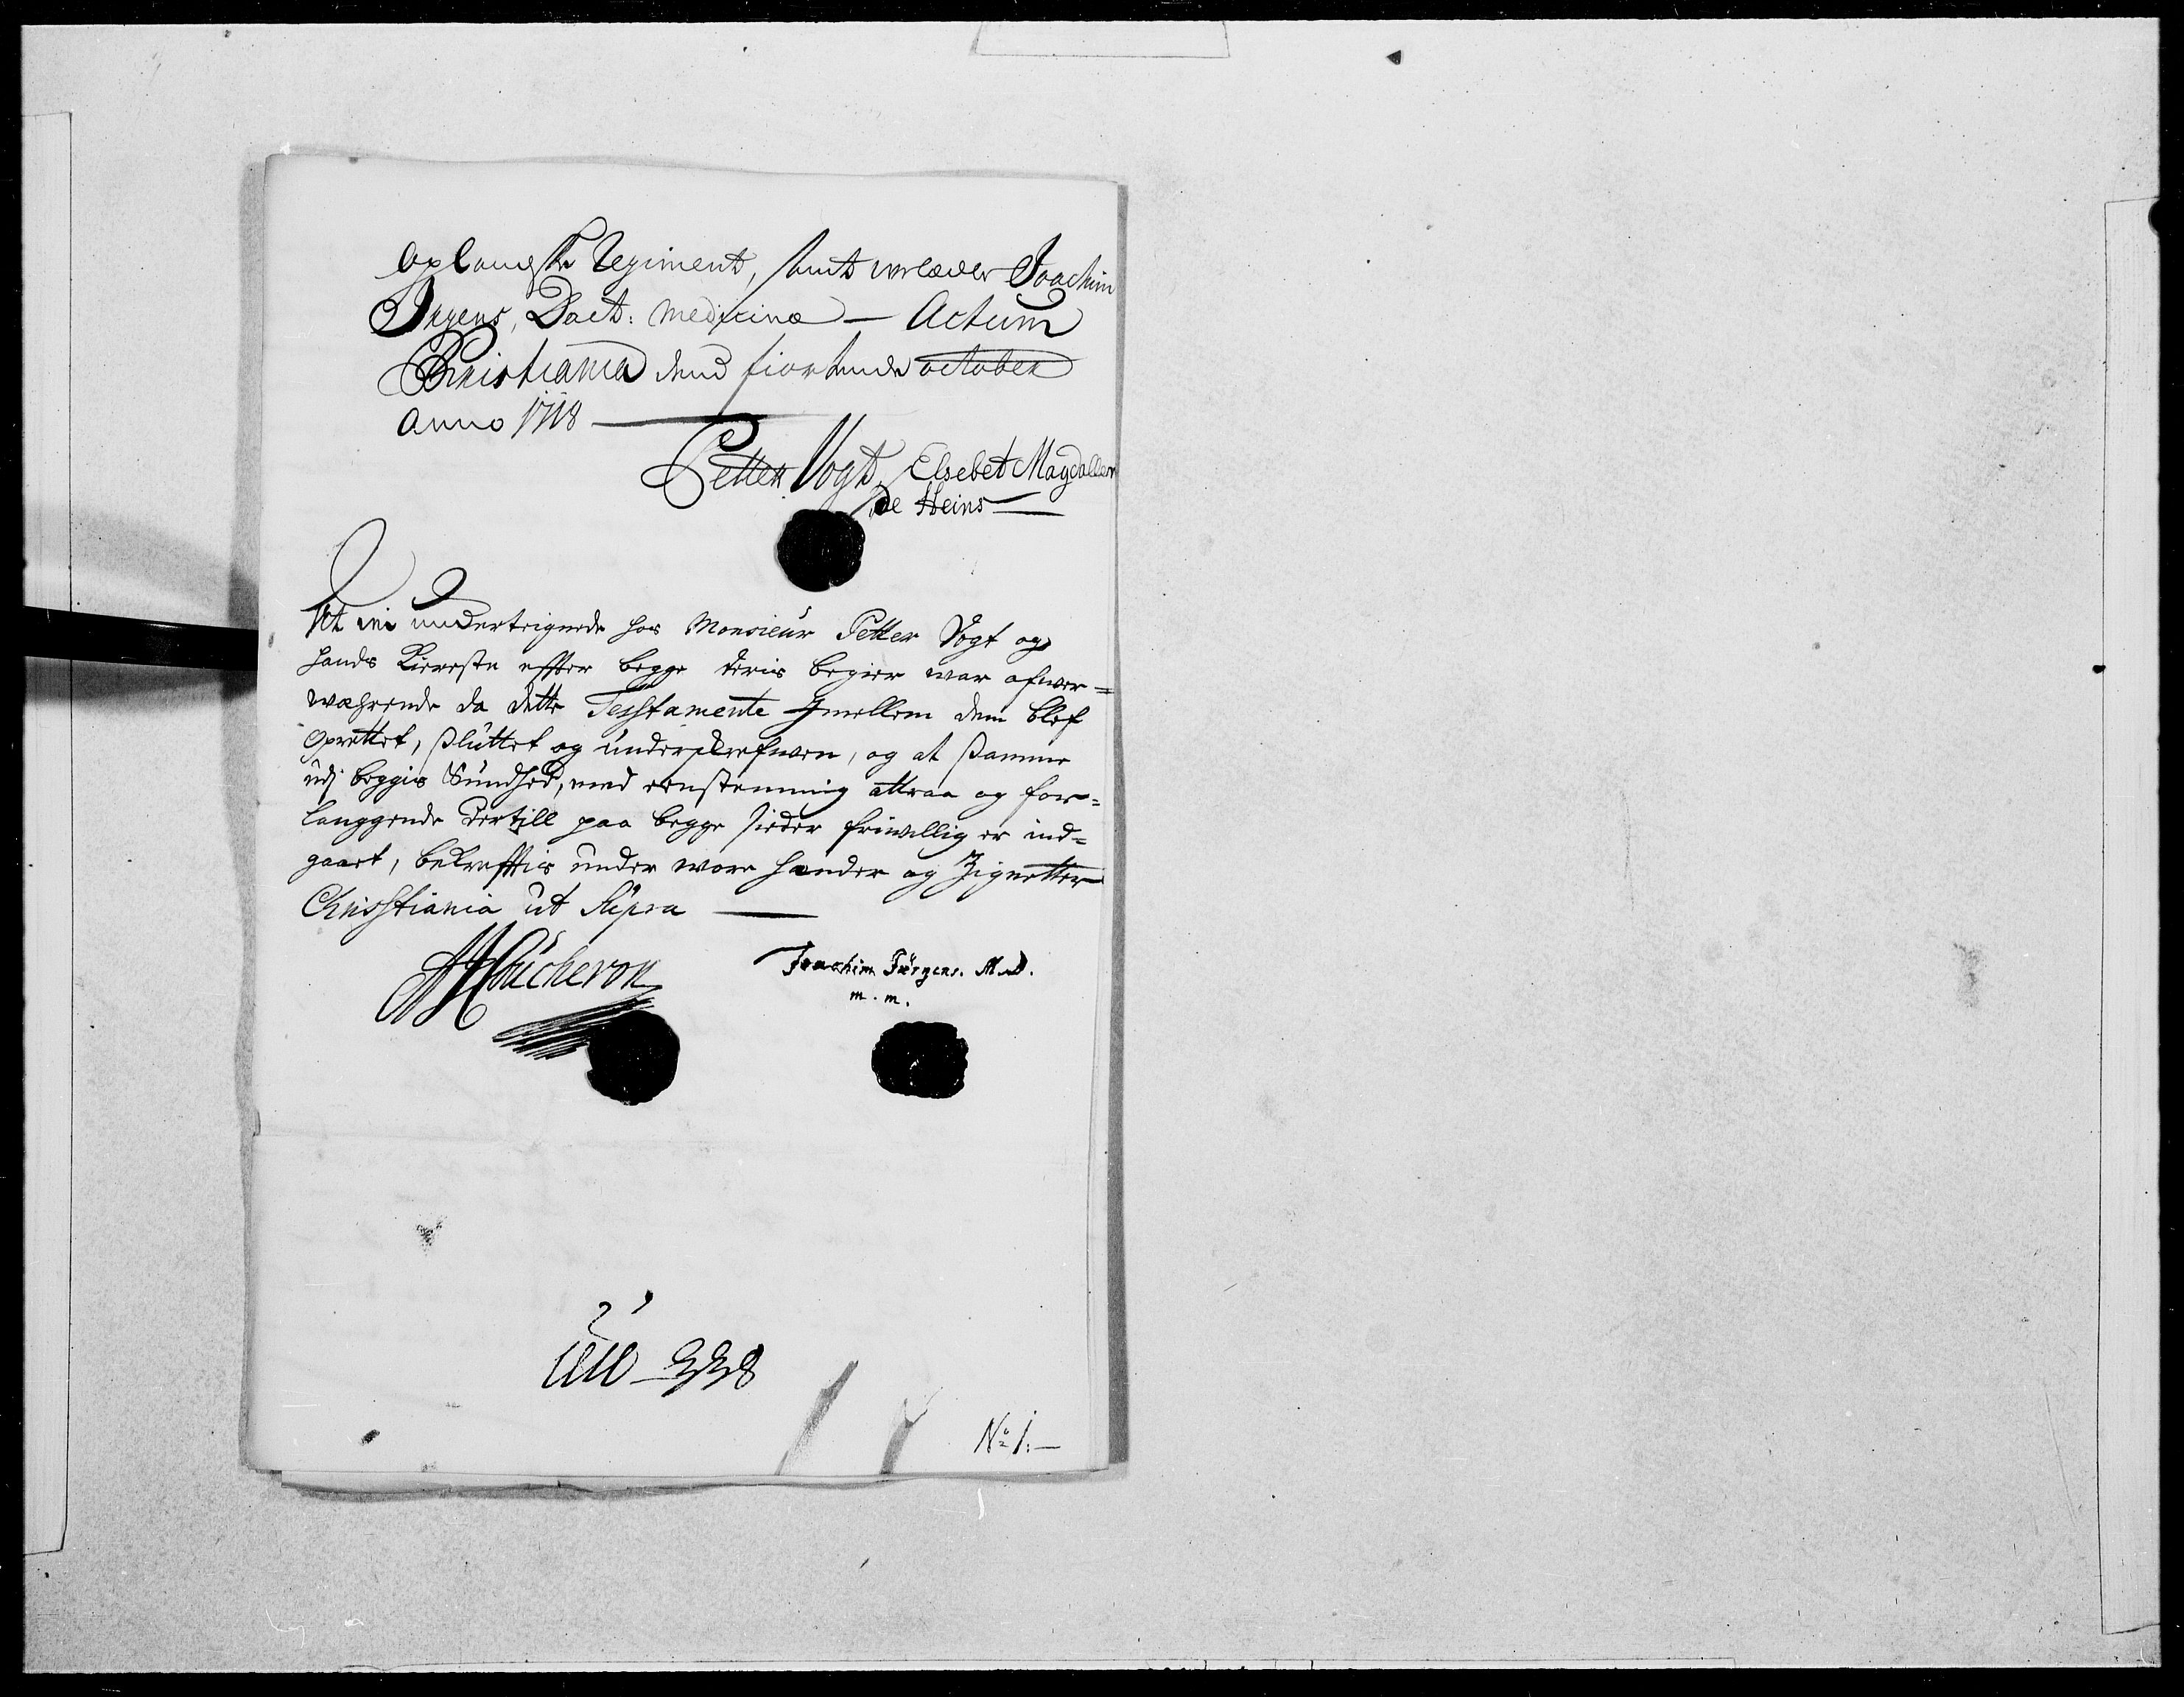 Oplandske Regiment, samt velædle Joachim
Irgens, Doct: Medicinæ — Actum
Christiania dend fiortende october
Anno 1718
Petter Vogt, Elsebet Magdallen
De Heins
At wi underteignede hos Monsieur Petter Vogt og
hands Kiereste effter begge deris begier war ofwer=
wæhrende da dette Tesstamente Jmellem dem blef
Oprettet, sluttet og underskrefwen, og at samme
udj beggis Sundhed, med eenstemmig attraa og for=
langgende dertill paa begge sieder friwillig er ind=
gaaet, bekrefftis under wore hænder og Zignetter
Chrisstiania ut Supra
AHBucheron
Joachim Jürgens. M.D.
m. m.
No 1: